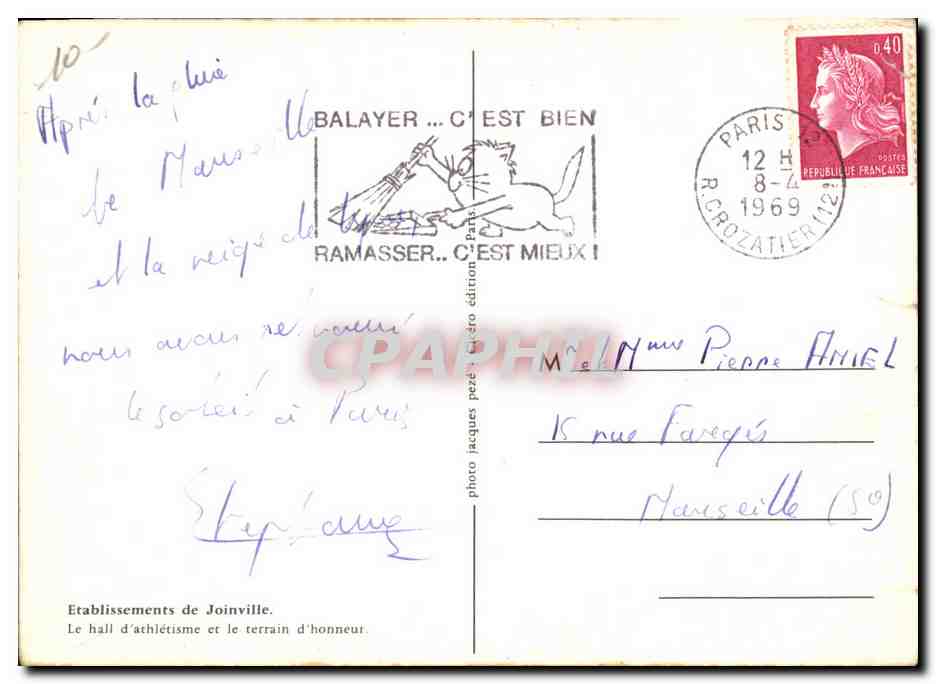 10-
Après la pluie
de Marseille
et la neige de Lyon,
nous avons retrouvé
le soleil à Paris
Stéphane
Etablissements de Joinville.
Le hall d'athlétisme et le terrain d'honneur.
BALAYER ... C'EST BIEN
RAMASSER.. C'EST MIEUX !
photo jacques pezé - Cicéro édition Paris.
CPAPHIL
PARIS
12 H
8-4
1969
R. CROZATIER (12e)
0,40
POSTES
REPUBLIQUE FRANÇAISE
Mr et Mme Pierre AMIEL
15 rue Fargès
Marseille (8e)